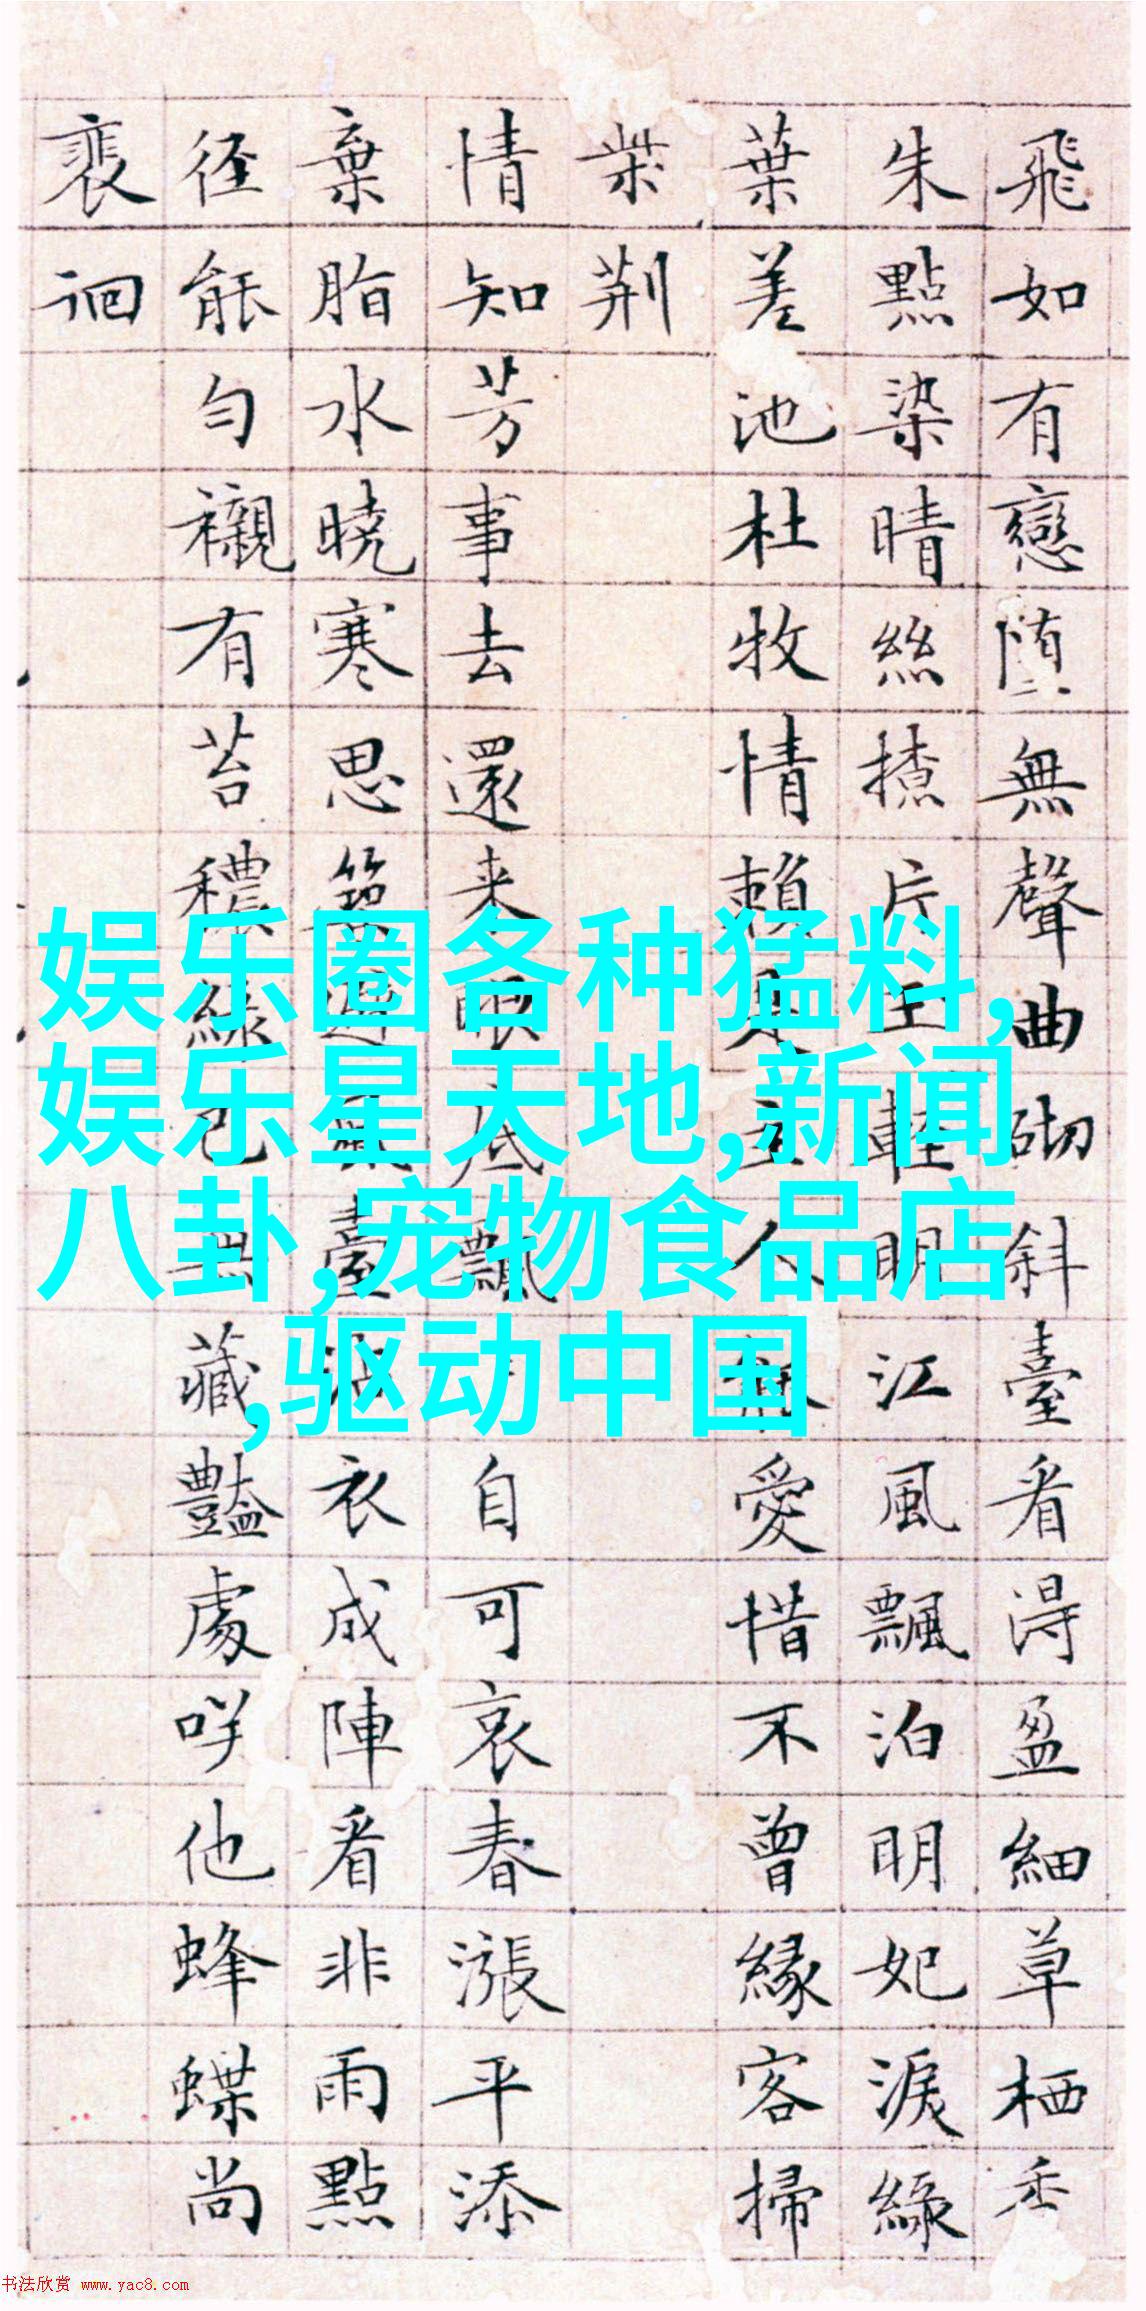 飛如有戀堕無聲曲砌斜臺看得盈細草栖香
朱點染晴絲揸片輕明江風飄泊明妃淚綠
葉差池杜牧情賴是主人愛惜不曾緣客掃
柴荆
情知芳事去還来眼底飄自可哀春漲平添
棄脂水曉寒思臺衣成陣看非雨點
径能勻襯有苔穠綠已藏豔處咲他蜂蝶尚
裵徊
娱乐圈各种猛料,
娱乐星天地,新闻
八卦,宠物食品店
,驱动中国
书法欣赏 www.yac8.com